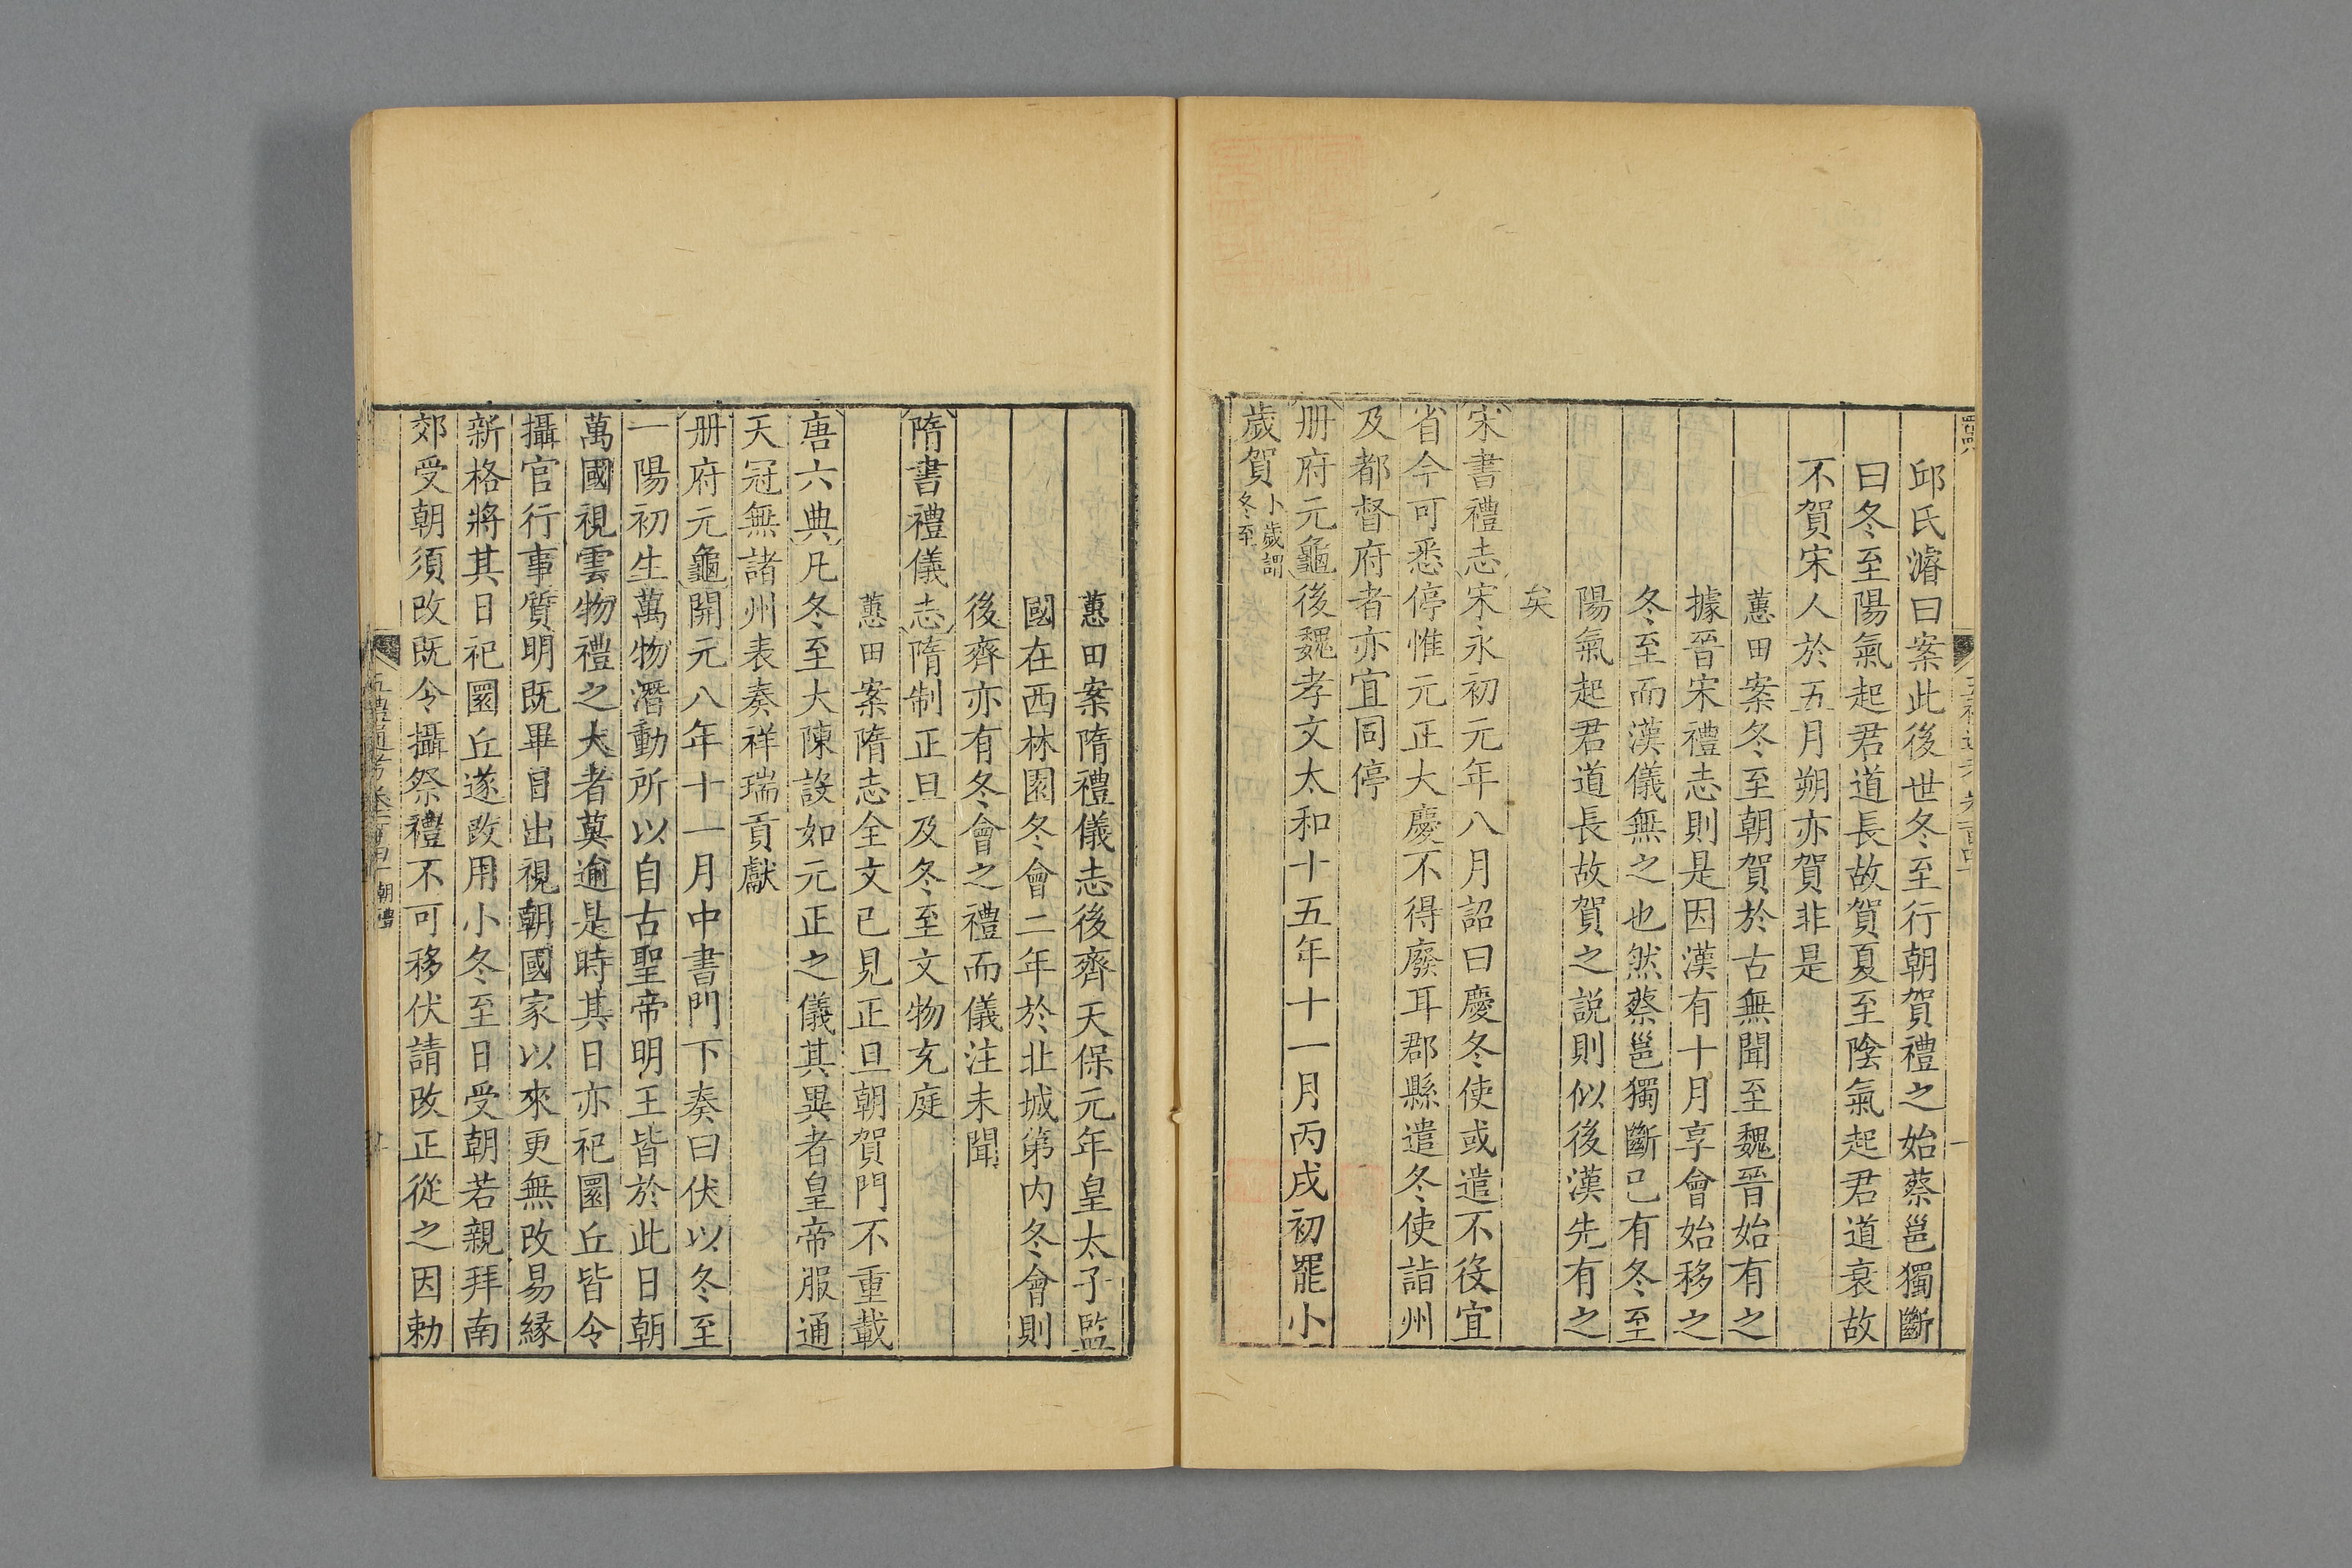 邱氏濬曰案此後世冬至行朝賀禮之始蔡邕獨斷
曰冬至陽氣起君道長故賀夏至陰氣起君道衰故
不賀宋人於五月朔亦賀非是
蕙田案冬至朝賀於古無聞至魏晉始有之
據晉宋禮志則是因漢有十月享會始移之
冬至而漢儀無之也然蔡邕獨斷已有冬至
陽氣起君道長故賀之説則似後漢先有之
矣
宋書禮志宋永初元年八月詔曰慶冬使或遣不役宜
省今可悉停惟元正大慶不得廢耳郡縣遣冬使詣州
及都督府者亦宜同停
册府元龜後魏孝文太和十五年十一月丙戌初罷小
歲賀小歲謂冬至
蕙田案隋禮儀志後齊天保元年皇太子監
國在西林園冬會二年於北城第内冬會則
後齊亦有冬會之禮而儀注未聞
隋書禮儀志隋制正旦及冬至文物充庭
蕙田案隋志全文已見正旦朝賀門不重載
唐六典凡冬至大陳設如元正之儀其異者皇帝服通
天冠無諸州表奏祥瑞貢獻
册府元龜開元八年十一月中書門下奏曰伏以冬至
一陽初生萬物潛動所以自古聖帝明王皆於此日朝
萬國視雲物禮之大者莫逾是時其日亦祀圜丘皆令
攝官行事質明既畢日出視朝國家以來更無改易緣
新格將其日祀圜丘遂改用小冬至日受朝若親拜南
郊受朝須改既令攝祭禮不可移伏請改正從之因勅
五禮通考卷一百四十 朝禮